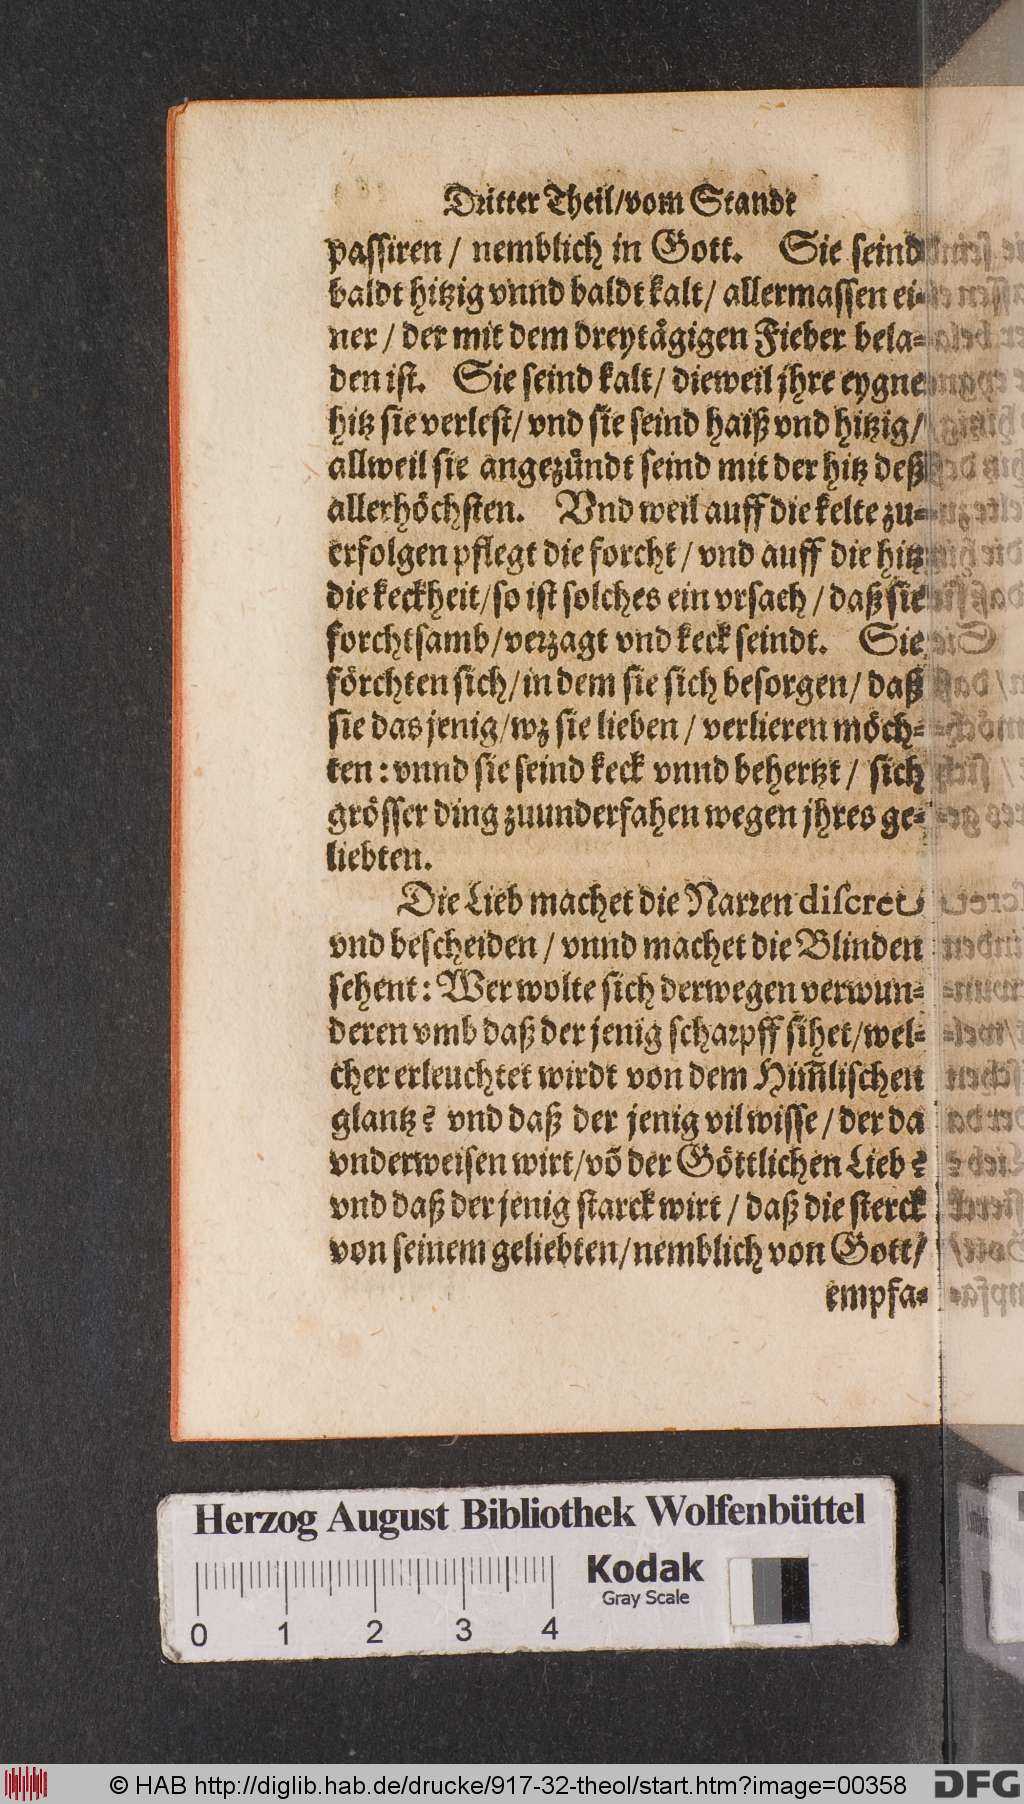 Dritter Theil/vom Standt
passiren / nemblich in Gott. Sie seind
baldt hitzig vnnd baldt kalt/ allermassen ei⸗
ner / der mit dem dreytågigen Fieber bela⸗
den ist. Sie seind kalt/ dieweil jhre eygne
hitz sie verlest/ vnd sie seind haiß vnd hitzig/
allweil sie angezůndt seind mit der hitz deß
allerhöchsten. Vnd weil auff die kelte zu⸗
erfolgen pflegt die forcht / vnd auff die hitz
die keckheit/so ist solches ein vrsach / daß sie
forchtsamb/verzagt vnd keck seindt. Sie
förchten sich/in dem sie sich besorgen/ daß
sie das jenig/wz sie lieben / verlieren möch⸗
ten : vnnd sie seind keck vnnd behertzt / sich
grösser ding zuunderfahen wegen jhres ge⸗
liebten.
Die Lieb machet die Narren discret
vnd bescheiden / vnnd machet die Blinden
sehent : Wer wolte sich derwegen verwun⸗
deren vmb daß der jenig scharpff sihet/wel⸗
cher erleuchtet wirdt von dem Him̃lischen
glantz? vnd daß der jenig vil wisse / der da
vnderweisen wirt/võ der Göttlichen Lieb?
vnd daß der jenig starck wirt / daß die sterck
von seinem geliebten/nemblich von Gott/
empfa⸗
Herzog August Bibliothek Wolfenbüttel
Kodak
Gray Scale
0 1 2 3 4
© HAB http://diglib.hab.de/drucke/917-32-theol/start.htm?image=00358
DFG